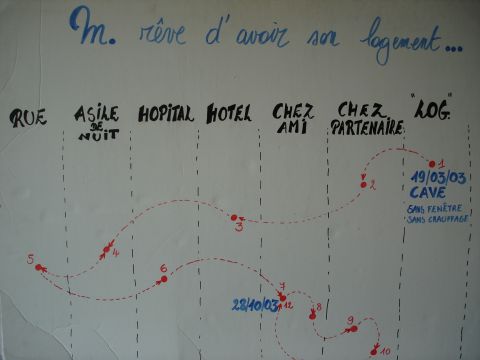 M. rêve d'avoir son logement...
RUE
ASILE
DE
NUIT
HOPITAL
HOTEL
CHEZ
AMI
CHEZ
PARTENAIRE
"LOG."
1
19/03/03
CAVE
SANS FENÊTRE
SANS CHAUFFAGE
2
3
4
5
6
7
28/10/03
12
8
9
10